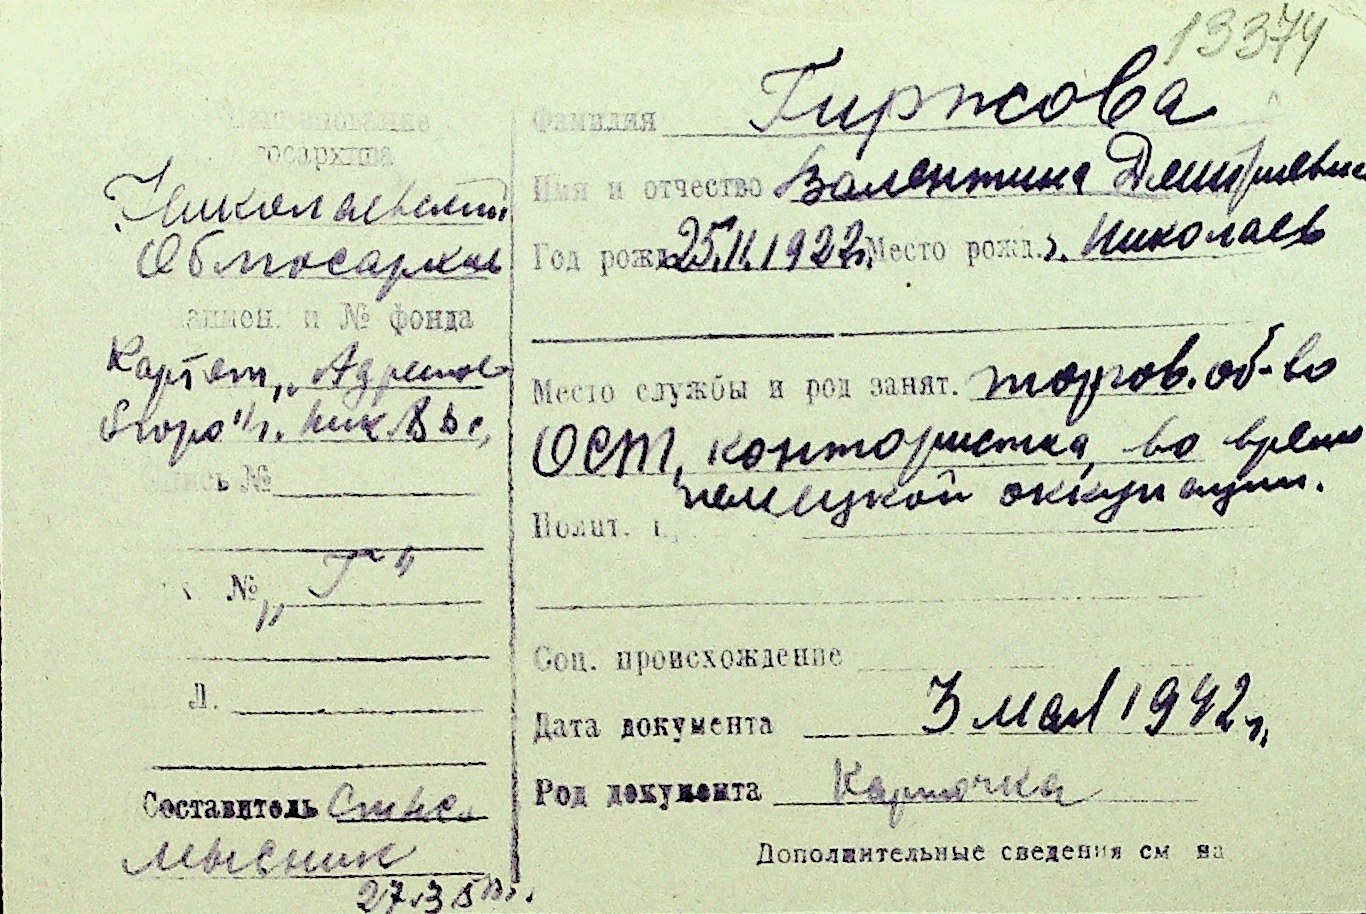 13374
Наименование
госархива
Николаевский
Облгосархив
наимен. и № фонда
Картот. „Адресное
бюро" г. Ник.
опись №
№ „Г"
Л.
Составитель
Мысник
27.3.
Фамилия Гиржова
Имя и отчество Валентина Дмитриевна
Год рожд. 25.II.1922г. Место рожд. г. Николаев
Место службы и род занят. торгов. об-во
ОСТ, контористка, во время
немецкой оккупации.
Полит.
Соц. происхождение
Дата документа 3 мая 1942 г.
Род документа Карточка
Дополнительные сведения см на